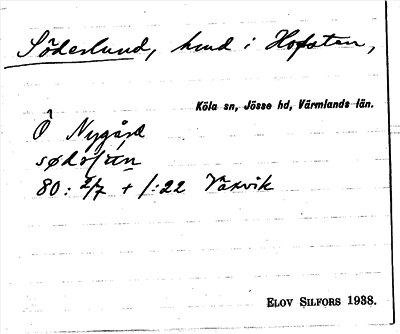 Söderlund, hmd i Hofsten,
Köla sn, Jösse hd, Värmlands län.
Ö Nygård
80: 2/7 + f: 22 Växvik
ELOV SILFORS 1938.